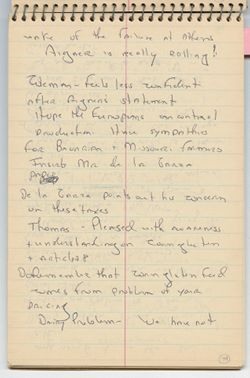 wake of the failure at Athens
Aigner is really rolling!
Zeeman - feels less confident
after Aigners statement
Hope the Europeans can control
production. Have sympathies
for Bavarian & Missouri farmers
Insist Mr de la Garza
De la Garza points out his concern
on these taxes
Thomas - Pleased with awareness
& understanding on Corn gluten
& Article 28
Do Remember that Corn gluten feed
comes from problem of your
pricing
Dairy Problem - We have not